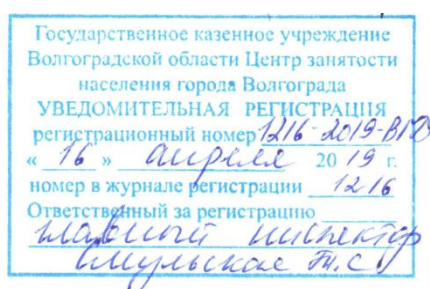 Государственное казенное учреждение
Волгоградской области Центр занятости
населения города Волгограда
УВЕДОМИТЕЛЬНАЯ РЕГИСТРАЦИЯ
регистрационный номер 1216-2019-
« 16 » апреля 20 19 г.
номер в журнале регистрации 1216
Ответственный за регистрацию
главный инспектор